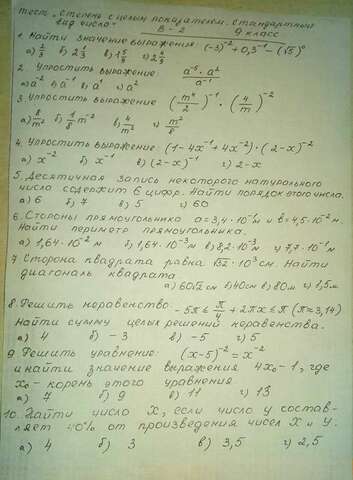 Тест „Степень с целым показателем. Стандартный
вид числа"
В - 2 9 класс.
1. Найти значение выражения (-3)⁻² + 0,3⁻¹ - (√5)⁰
2. Упростить выражение a⁻⁵ · a² / a⁻¹
а) a⁻² б) a⁻¹ в) a¹ г) a²
3. Упростить выражение (m⁴/2)⁻¹ · (4/m)⁻²
а) 8/m² б) 1/8 m⁻² в) 4/m² г) m²/8
4. Упростить выражение: (1-4x⁻¹+4x⁻²)·(2-x)⁻²
а) x⁻² б) x⁻¹ в) (2-x)⁻¹ г) 2-x
5. Десятичная запись некоторого натурального
число содержит 6 цифр. Найти порядок этого числа.
а) 6 б) 7 в) 5 г) 60
6. Стороны прямоугольника a=3,4·10⁻¹м и в=4,5·10⁻²м.
Найти периметр прямоугольника.
а) 1,64·10⁻² м б) 1,64·10⁻³м в) 8,2·10⁻³м г) 7,7·10⁻¹м
7. Сторона квадрата равна √32·10³см. Найти
диагональ квадрата
а) 60√2 см б) 40см в) 80м г) 1,5м
8. Решить неравенство: -5π ≤ π/4 + 2πx ≤ π (π≈3,14)
Найти сумму целых решений неравенства.
а) 4 б) -3 в) -5 г) 5
9. Решить уравнение: (x-5)⁻² = x⁻²
и найти значение выражения 4x₀-1, где
x₀ - корень этого уравнения.
а) 7 б) 9 в) 11 г) 13
10. Найти число X, если число y состав-
ляет 40% от произведения чисел X и У.
а) 4 б) 3 в) 3,5 г) 2,5